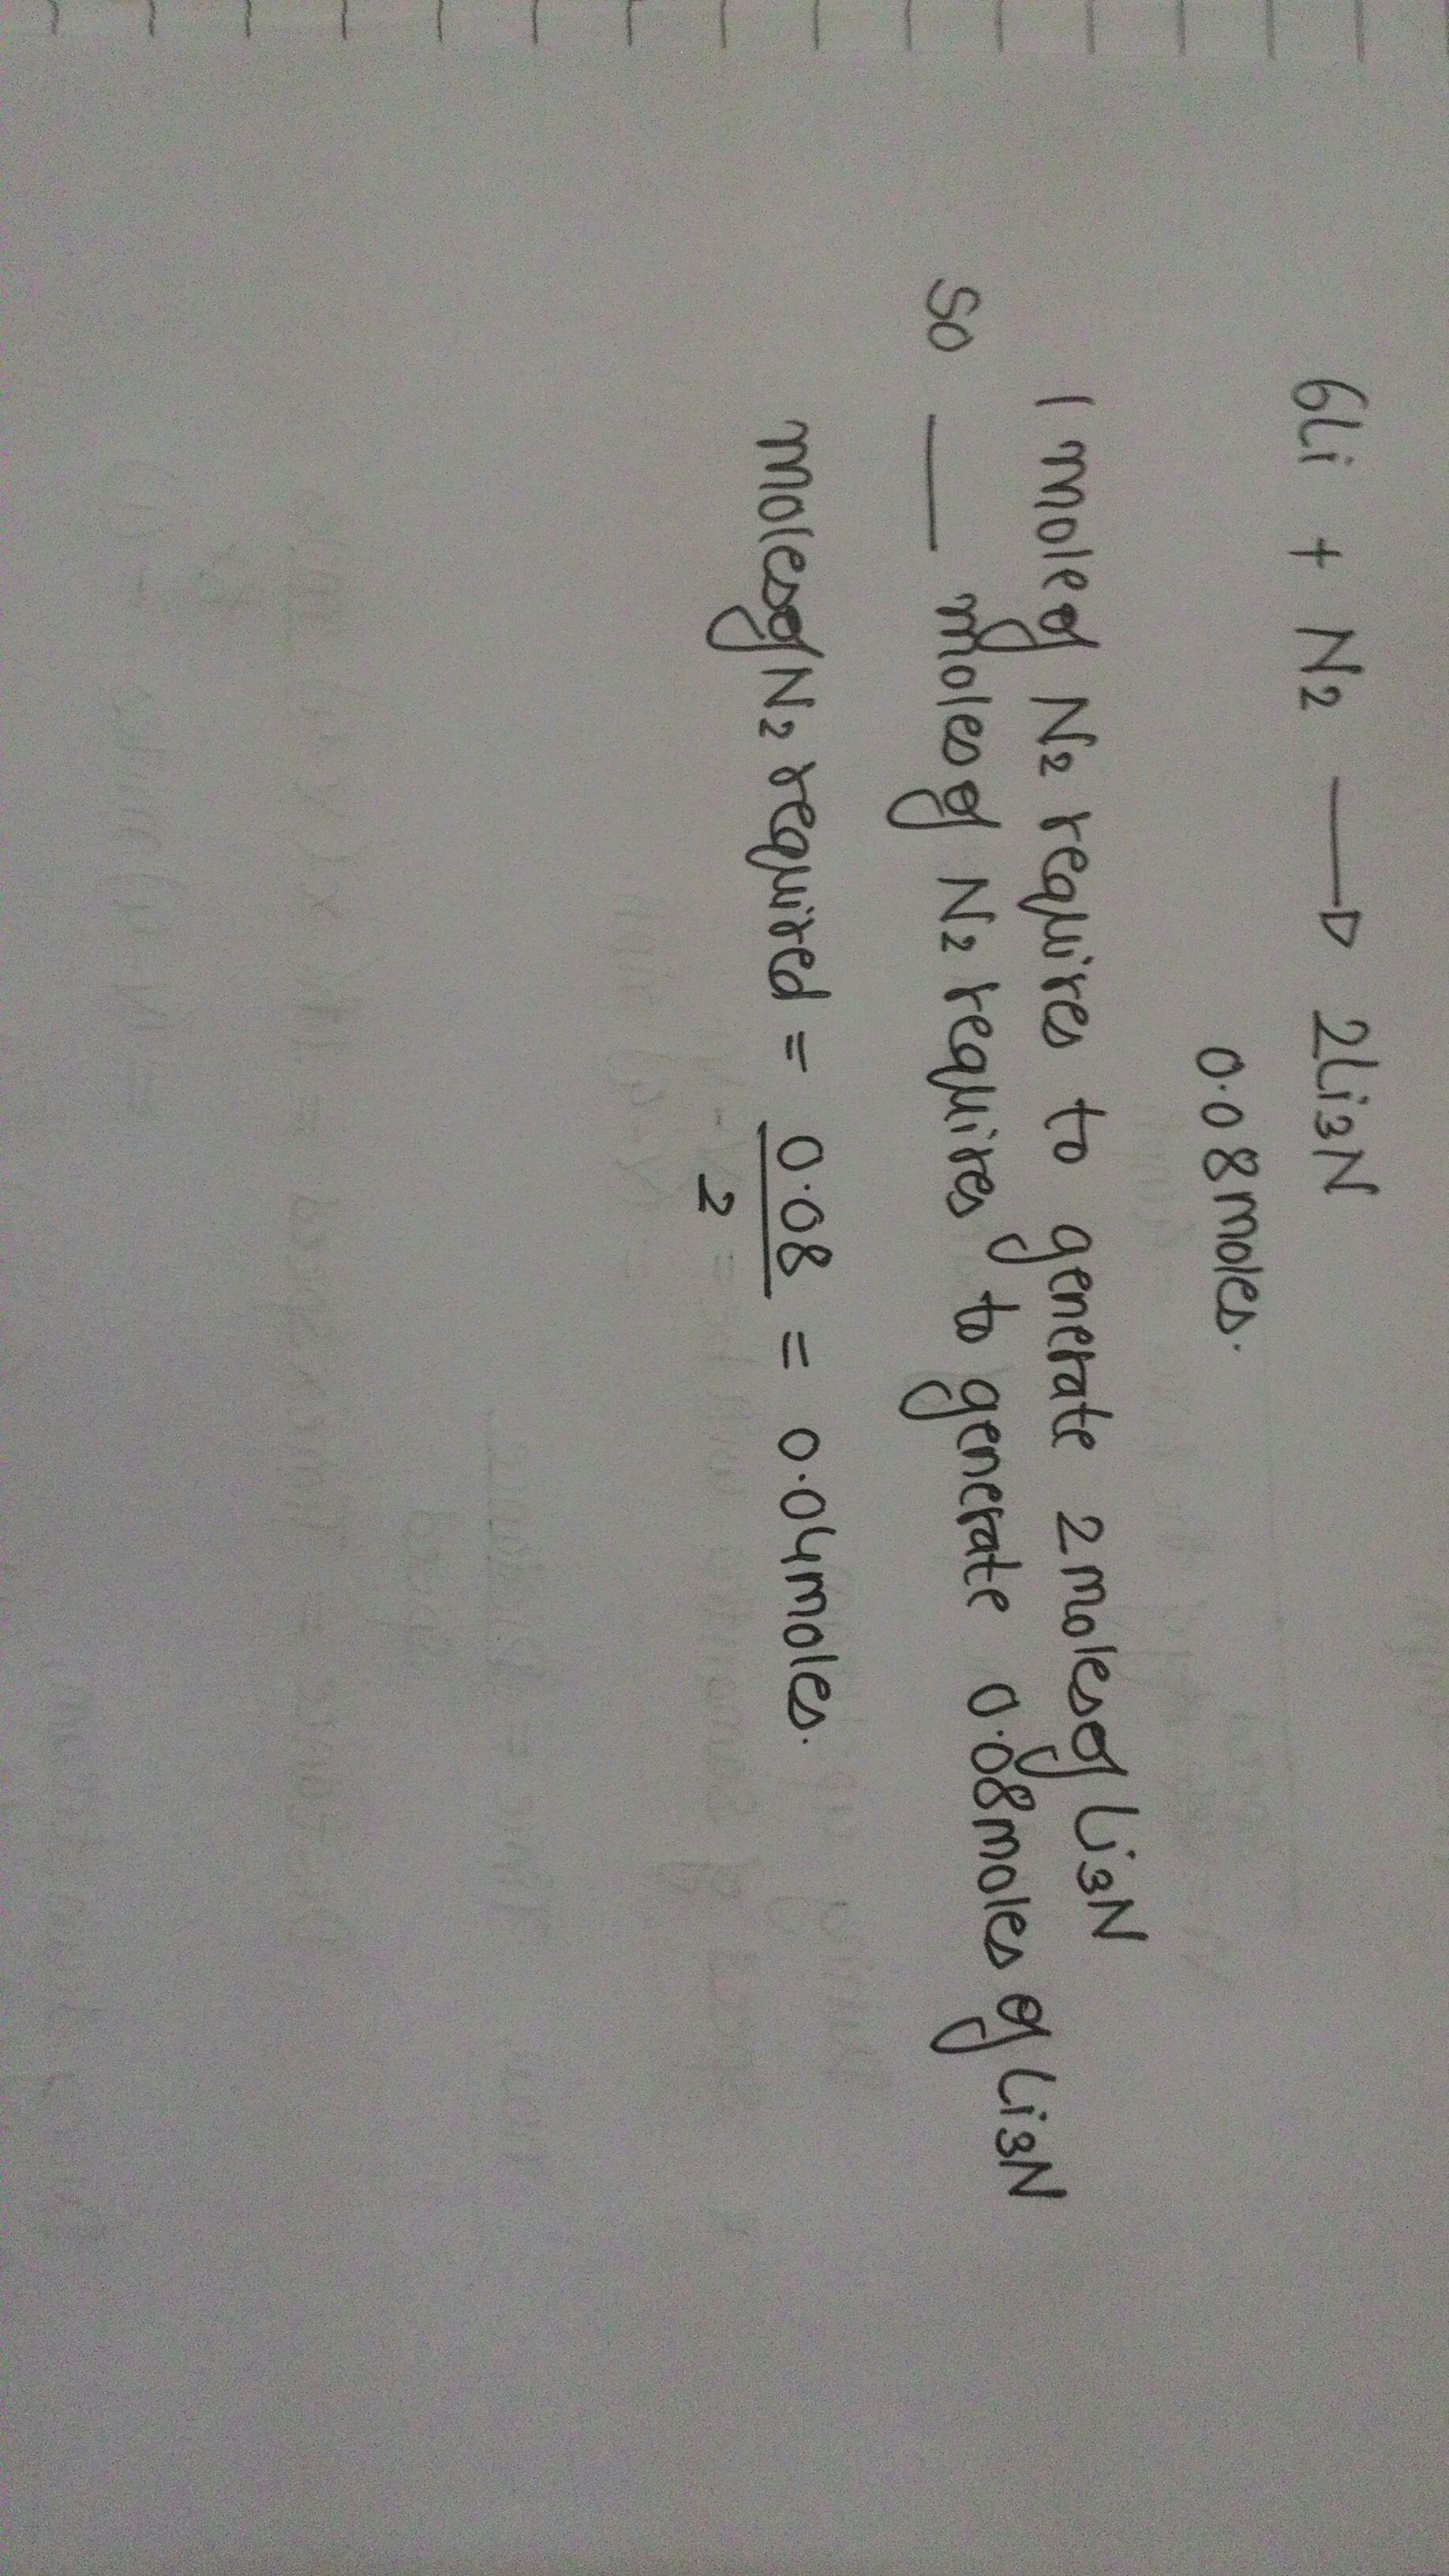 6Li + N2 → 2Li3N
0.08moles.
1 mole of N2 requires to generate 2 moles of Li3N
so ___ moles of N2 requires to generate 0.08moles of Li3N
moles of N2 required = 0.08/2 = 0.04moles.